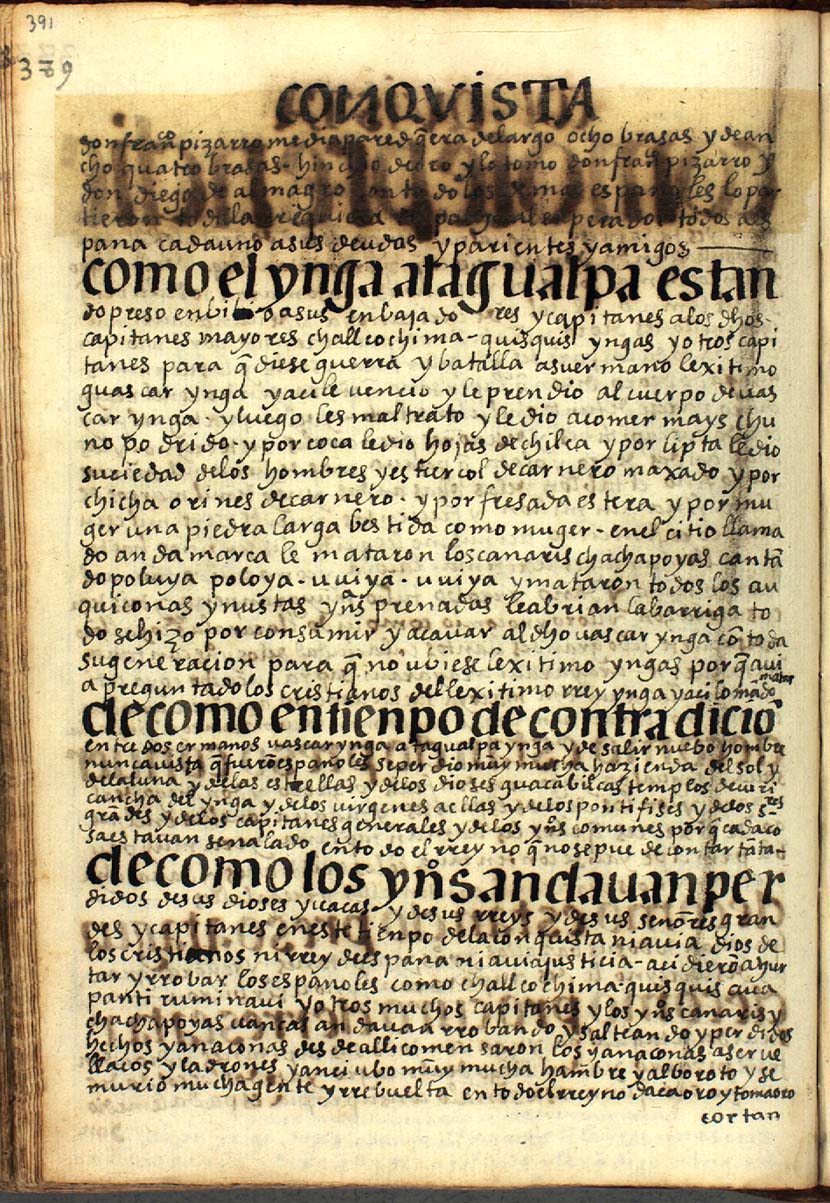 391
379
CONQVISTA
don franco pizarro media pared q̃ era de largo ocho brasas y de an
cho quatro brasas - hinchio de oro y lo tomo don franco pizarro y
don diego de almagro con todo los demas españoles lo par
tieron toda la rriquiesa
pana cada uno a sus deudos y parientes y amigos
como el ynga atagualpa estan
do preso enbi o a sus enbajado res y capitanes a los dhos
capitanes mayores challcochima - quisquis yngas y otros capi
tanes para q̃ diese guerra y batalla a su ermano lexitimo
guascar ynga y aci le vencio y le prendio al cuerpo de uas
car ynga - y luego les maltrato y le dio a comer mays chu
no podrido - y por coca le dio hojas de chilca y por lipta le dio
suciedad de los hombres y estiercol de carnero maxado y por
chicha orines de carnero - y por fresada estera y por mu
ger una piedra larga bestida como muger - en el citio llama
do andamarca le mataron los canaris chachapoyas cantã
do poluya poloya - uuiya - uuiya y mataron todos los au
quiconas y nustas yn̅s prenadas le abrian la barriga to
do se hizo por consumir y acauar al dho uascar ynga cõ toda
su generacion para q̃ no ubiese lexitimo yngas porq̃ aui
a preguntado los cristianos del lexitimo rrey ynga y aci lo mãdo matar
de como en tienpo de contradiciõ
entre dos ermanos uascar ynga atagualpa ynga y de salir nuebo hombre
nunca uista q̃ fuirõ espanoles se perdio muy mucha hazienda del sol y
de la luna y de las estrellas y de los dioses guaca bilcas templos de curi
cancha del ynga y de los uirgenes acllas y de los pontifises y de los s̅res
grãdes y de los capitanes generales y de los yn̅s comunes porq̃ cada co
sa estauan senalado en todo el rreyno q̃ no se puede contar tãta
de como los yn̅s andauan per
didos de sus dioses y uacas - y de sus rreys y de sus senores gran
des y capitanes en este tienpo de la conquista ni auia dios de
los cristianos ni rrey de espana ni auia justicia - aci dierõ a hur
tar y rrobar los espanoles como challcochima - quisquis aua
panti ruminaui y otros muchos capitanes y los yn̅s canaris y
chachapoyas uancas andauan rrobando y salteando y perdidos
hechos yanaconas desde alli comensaron los yanaconas a ser ue
llacos y ladrones y anci ubo muy mucha hambre y alboroto y se
murio mucha gente y rrebuelta en todo el rreyno daca oro y toma oro
cortan